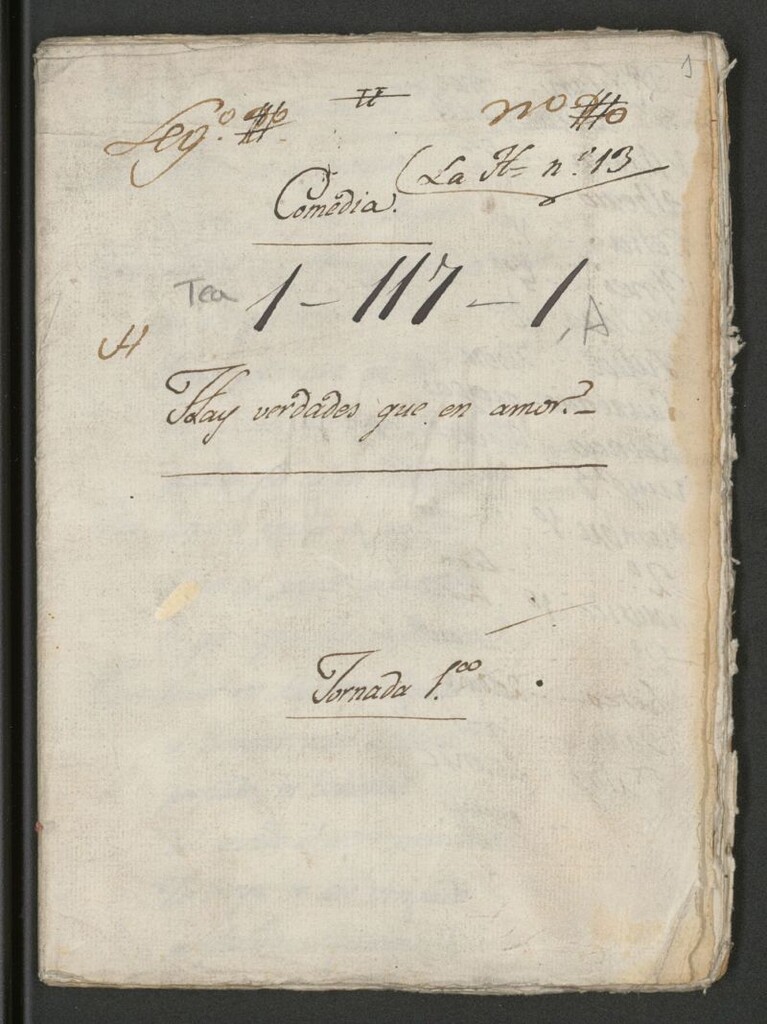 1
Leg.º
nº
La H= n.º 13
Comedia.
Tea 1-117-1, A
H
Hay verdades que en amor.=
Jornada 1.